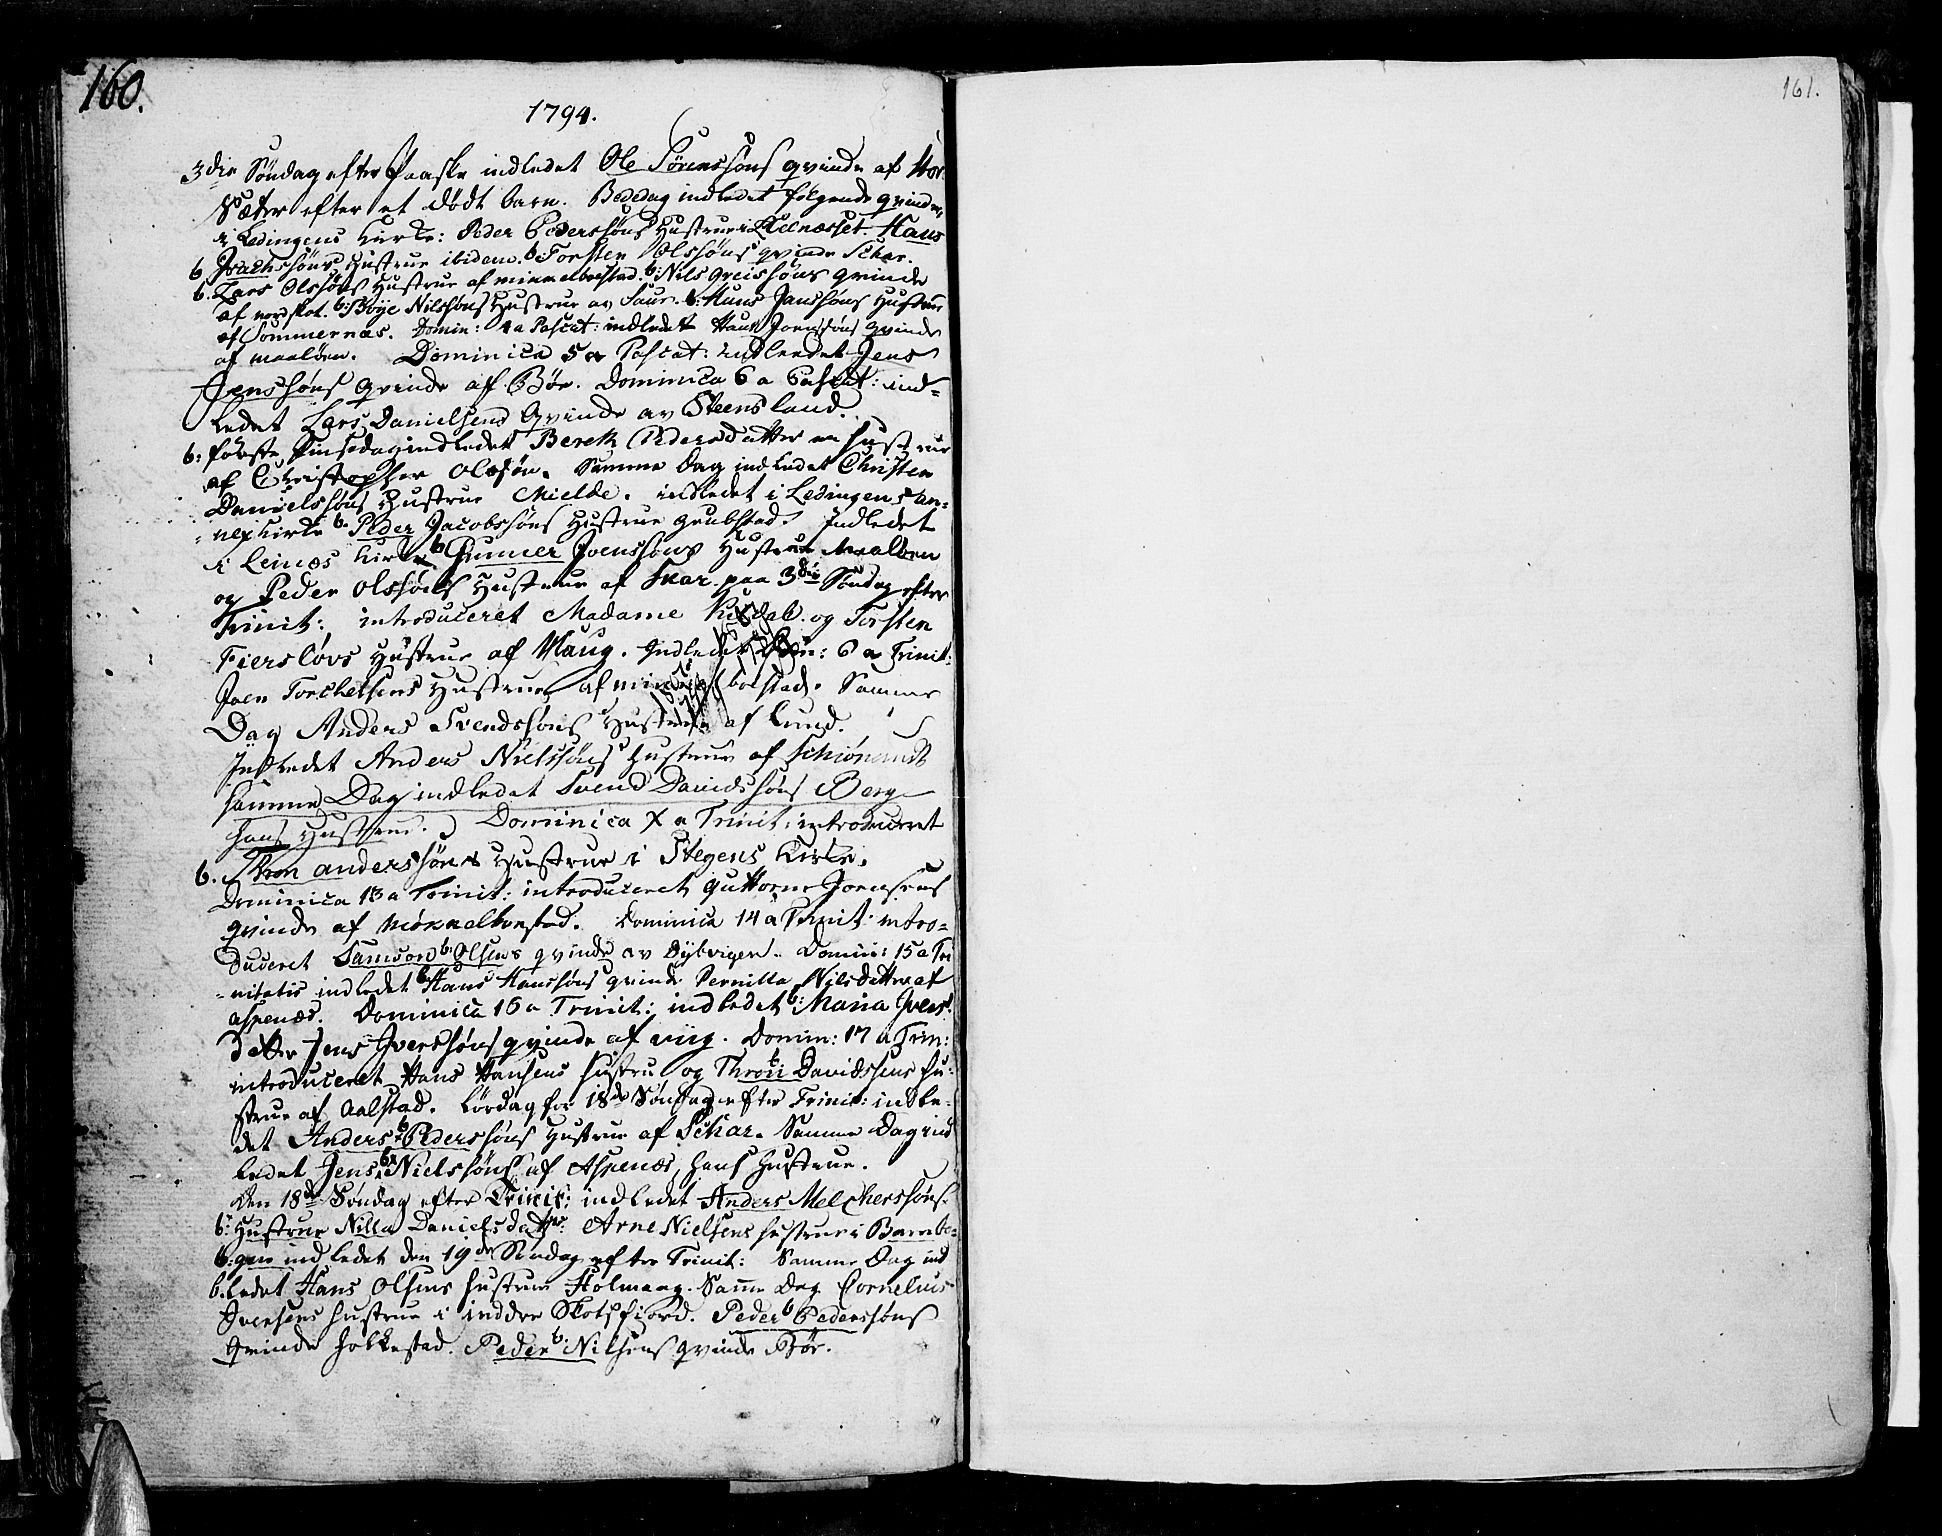 160.
161.
1794.
3die Søndag efter Paaske indledet Ole Sørenssøns qvinde af Hor-
Sæter efter et dødt barn. Bededag indledet følgende qvinder,
i Ledingens Kirke: Peder Pederssøns Hustrue i Hans
6 Hustrue ibidem. 6. Torsten Olssøns qvinde Schar.
6. Lars Olssøns Hustrue af 6: Nils qvinde
af nordskot. 6: Boye Nilssøns Hustrue av Saur. 6: Hans Janssøns Hustrue
af Sommernæs. Domin: 4 a Pascat: indledet Hans Joenssøns qvinde
af maaløen. Dominica 5 a Pascat: indledet Jens
Jenssøns qvinde af Bör. Dominica 6 a Pascat: ind-
ledet Lars Danielsens Qvinde av Steensland.
6: første Pinsedag indledet Berek Pedersdatter en hustrue
af Christopher Olssøn. Samme Dag indledet Christen
Danielssøns Hustrue Mielde. indledet i Ledingens an-
nexkirke 6. Peder Jacobssøns Hustrue grubstad. Indledet
i Leines Kirke 6 Gunner Joenssøns Hustrue Maaløen
og Peder Olssøns Hustrue af Skar. paa 3die Søndag efter
Trinit: introduceret Madame og Torsten
Hustrue af Haug. Indledet Dom: 6 a Trinit:
Joen Torchelsens Hustrue af bolstad. Samme
Dag Anders Svendssøns Hustrue af Lund.
Indledet Anders Nielssøns Hustrue af
samme Dag indledet Svend Davidssøns Berg
hans Hustrue. Dominica X a Trinit: introduceret
6. Thron anderssøns Hustrue i Stegens Kirke.
Dominica 13 a Trinit: introduceret Guttorm Joensens
qvinde af Dominica 14 a Trinit: intro-
duceret Samson 6: Olsens qvinde av Dybvigen. Domin: 15 a Tri
nitatis indledet 6 Hans Hanssøns qvinde Pernilla Nilsdatter af
aspenæs. Dominica 16 a Trinit: indledet 6: Maria Ivers-
datter Jens Iverssøns qvinde af viig. Domin: 17 a Trin:
introduceret Hans Hansens hustru og Thron Davidssens hu-
strue af Aalstad. Lørdag for 18de Søndag efter Trinit: indle-
det Anders 6 Pederssøns Hustrue af Schar. Samme Dag ind
ledet Jens 6: Nielssøns af Aspenæs, hans hustrue.
den 18de Søndag efter Trinit: indledet Anders Melcherssøns
6: Hustrue Nilla Danielsdatter. Arne Nielsens hustrue i Barmbo-
6: gen indledet den 19de Søndag efter Trinit: Samme Dag ind
6. ledet Hans Olsens hustrue Holmaag. Samme Dag Cornelius
Iversens hustrue i inddre Skotsfiord. Peder 6 Pederssøns
Qvinde holkestad. Peder 6: Nilsens qvinde Bör.